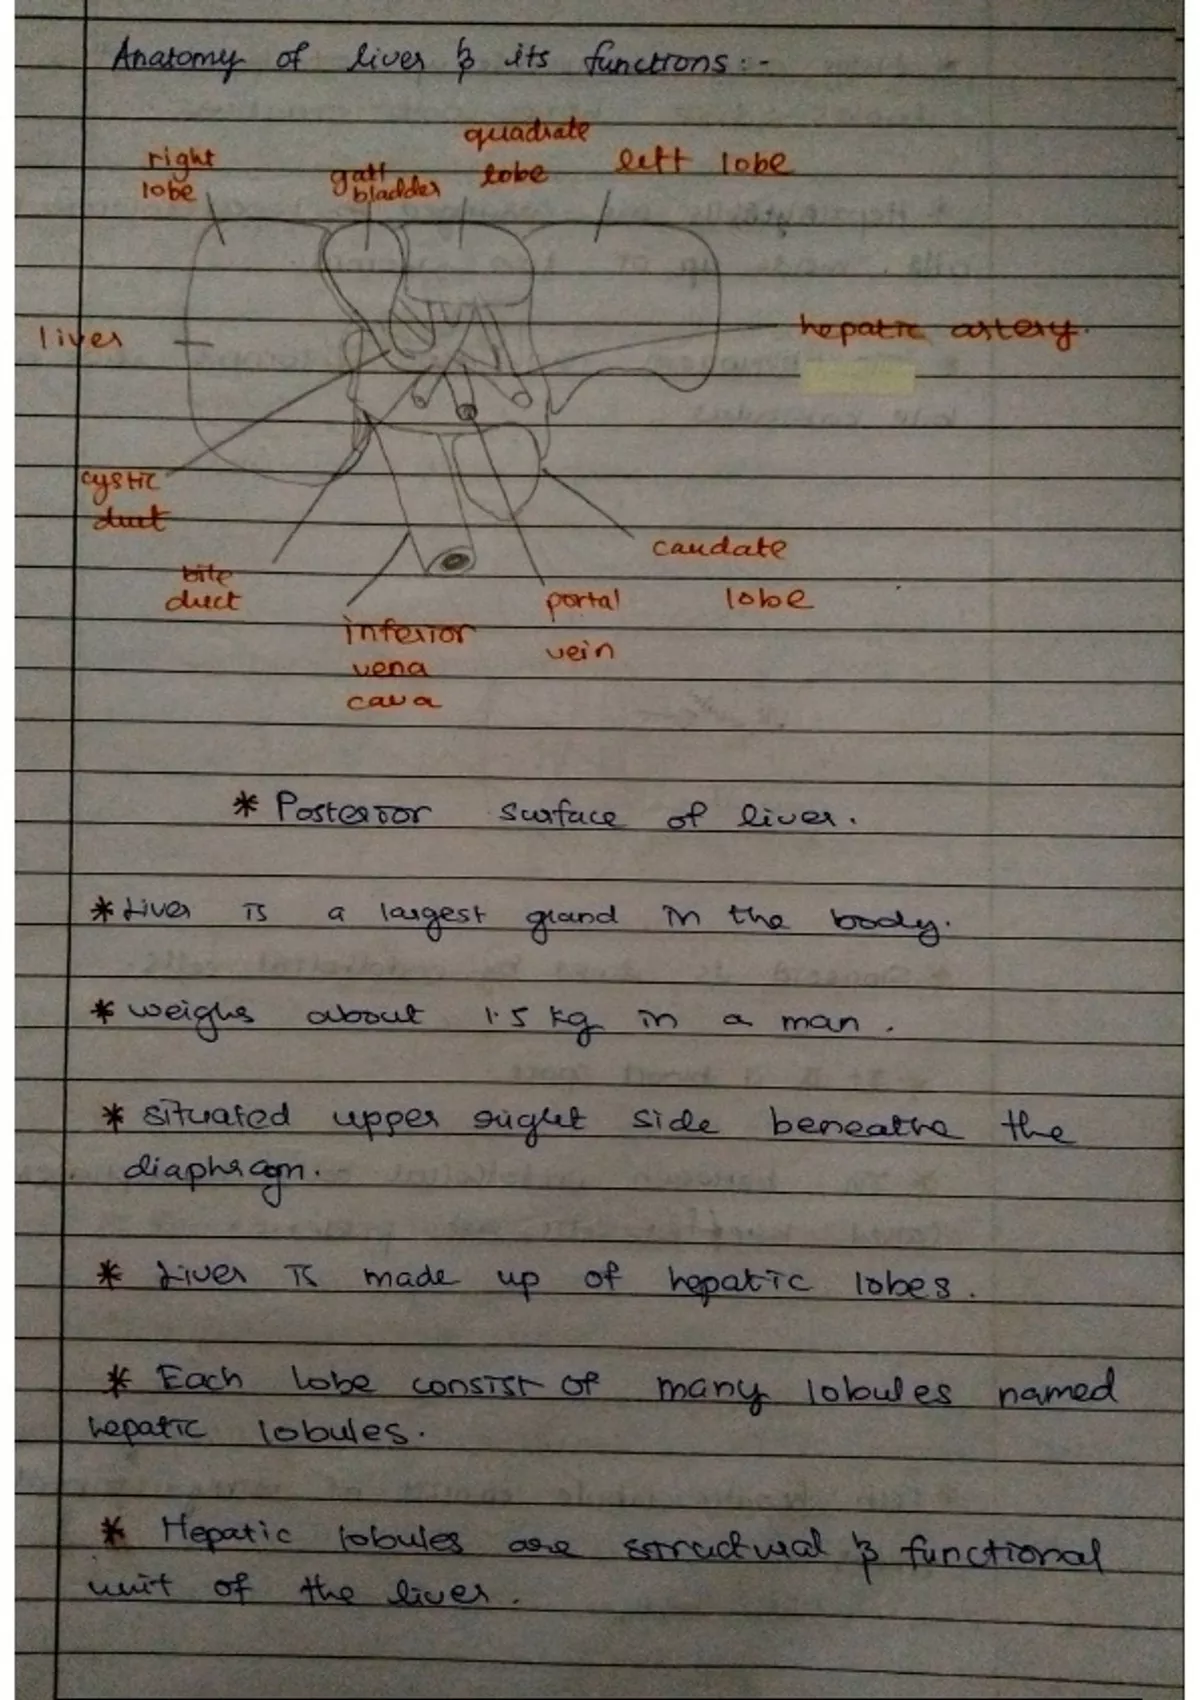 Anatomy of liver & its functions:-
quadrate
lobe
right
lobe
gall
bladder
left lobe
liver
hepatic artery.
cystic
duct
bile
duct
caudate
lobe
portal
vein
inferior
vena
cava
* Posterior surface of liver.
* Liver is a largest gland in the body.
* weighs about 1.5 kg in a man.
* situated upper right side beneathe the
diaphragm.
* Liver is made up of hepatic lobes.
* Each lobe consist of many lobules named
hepatic lobules.
* Hepatic lobules are structural & functional
unit of the liver.